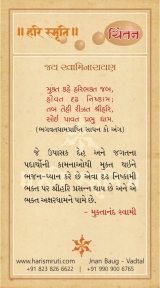 ॥ હરિ સ્મૃતિ ॥
ચિંતન
જય સ્વામિનારાયણ
મુક્ત કહે હરિભક્ત જબ,
હોવત દ્રઢ નિષ્કામ;
તબ તેહી રીઝત શ્રીહરિ,
સોઈ પાવત પ્રભુ ધામ.
(ભગવતધામપ્રાપ્તિ સાધન કો અંગ)
જે ઉપાસક દેહ અને જગતના
પદાર્થોની કામનાઓથી મુક્ત થઈને
ભજન-ધ્યાન કરે છે એવા દ્રઢ નિષ્કામી
ભક્ત પર શ્રીહરિ પ્રસન્ન થાય છે અને એ
ભક્ત અક્ષરધામને પામે છે.
- મુક્તાનંદ સ્વામી
www.harismruti.com | Jnan Baug - Vadtal
+91 823 826 6622 | +91 990 900 6765